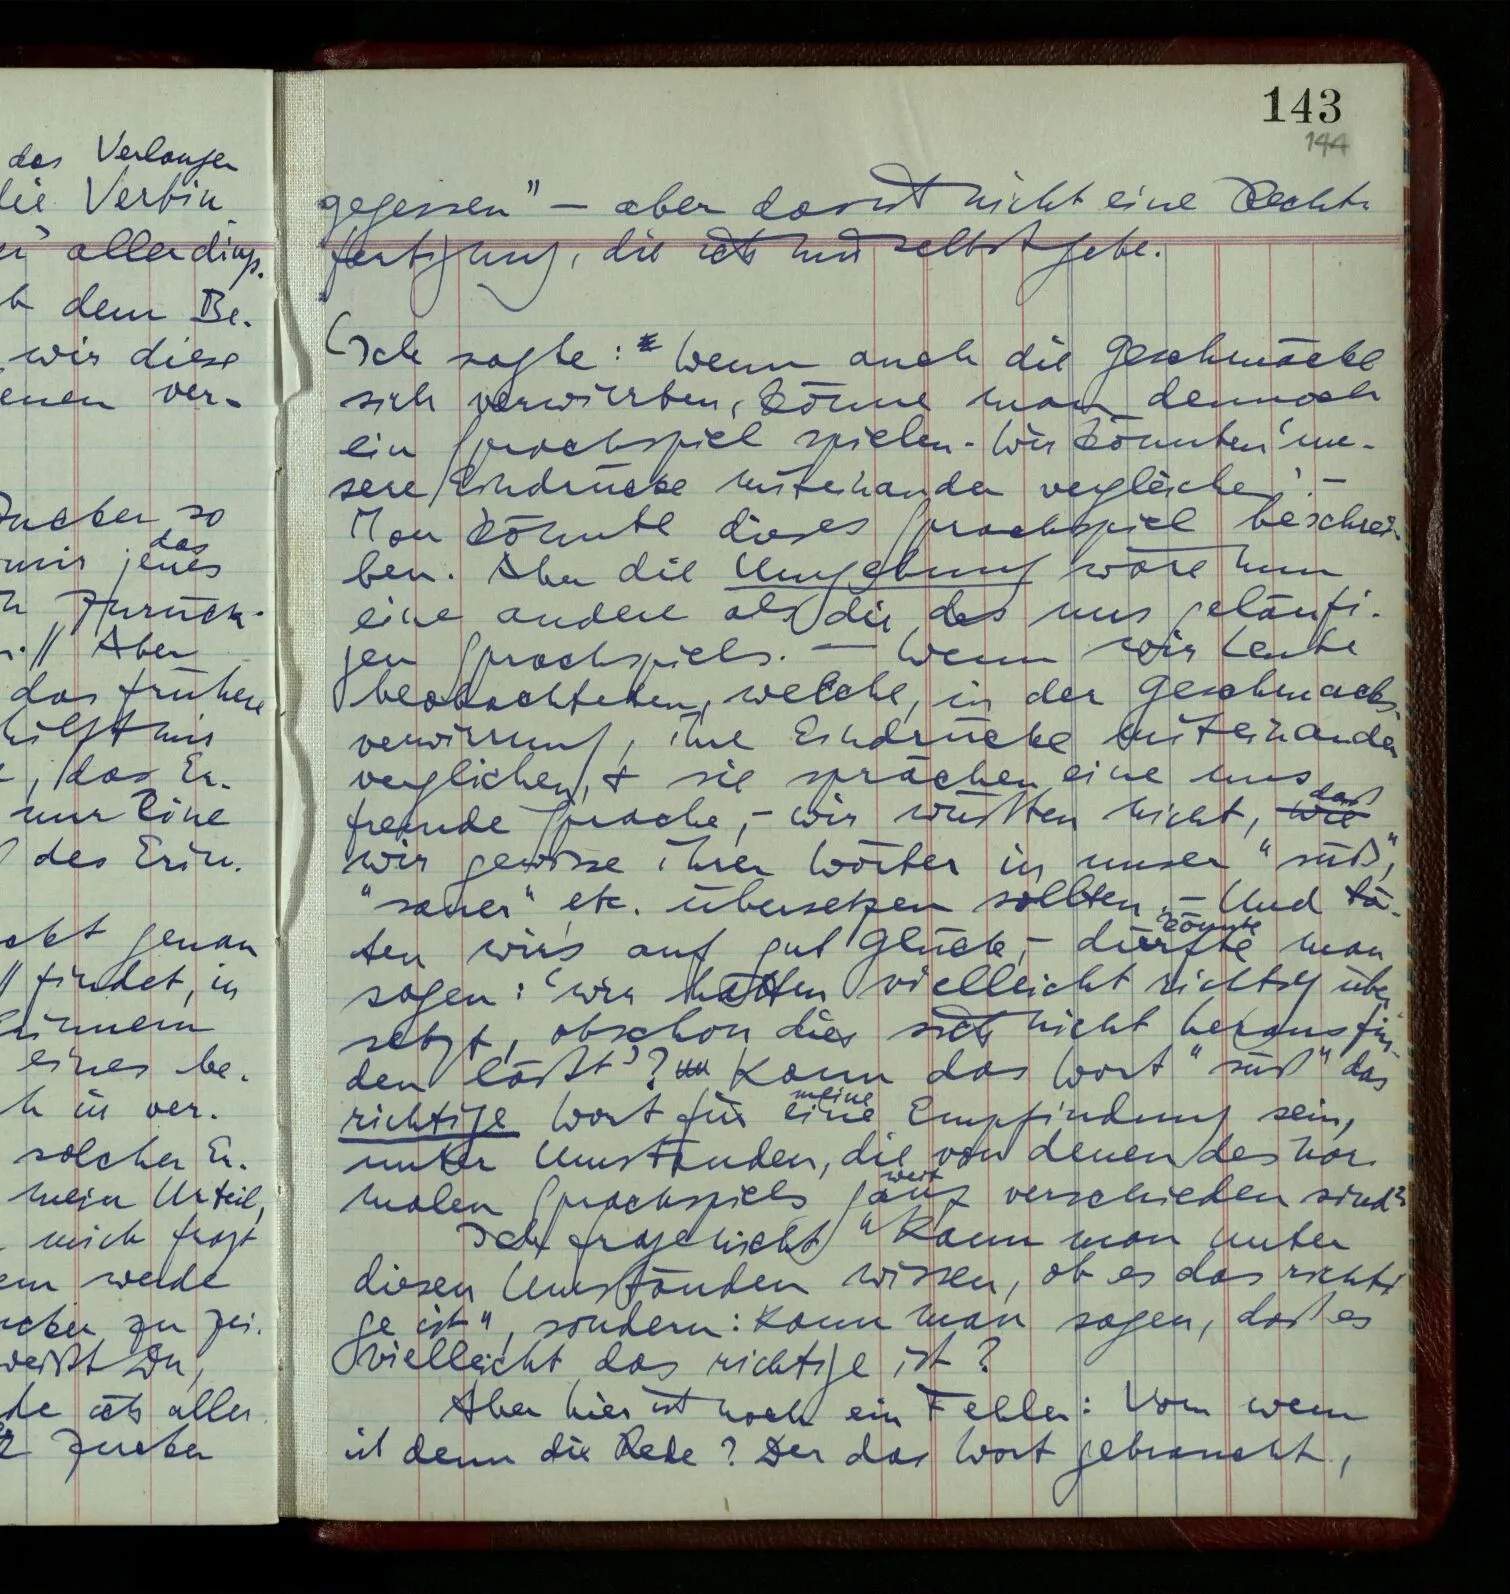 das Verlangen
die Verbin_
allerdings.
dem Be.
wir diese
enen ver-
Zucker so
das
mir jenes
Zurück-
.// Aber
das frühere
hilft mir
, das Er.
nur eine
des Erin.
genau
// findet, in
erinnern
eines be.
h in ver.
solcher Er.
mein Urteil,
mich fragt
werde
zu zei.
weißt Du,
als alles
Zucker
143
144
gegessen" – aber das ist nicht eine Recht-
fertigung, die ich mir selbst gebe.
Ich sagte: Wenn auch die Geschmäcke
sich verwirrten, könne man dennoch
ein Sprachspiel spielen. Wir könnten 'un-
sere Eindrücke miteinander vergleichen'. –
Man könnte dieses Sprachspiel beschrei-
ben. Aber die Umgebung wäre nun
eine andere als die des uns geläufi-
gen Sprachspiels. – Wenn wir Leute
beobachteten, welche, in der Geschmacks-
verwirrung, ihre Eindrücke miteinander
verglichen, & sie sprächen eine uns
daß
fremde Sprache, – wir wüßten nicht, wie
wir gewisse ihrer Wörter in unser "süß",
"sauer" etc. übersetzen sollten. – Und tä-
könnte
ten wir's auf gut Glück, – dürfte man
sagen: 'wir hätten vielleicht richtig über
setzt, obschon dies sich nicht herausfin-
den läßt'? Kann das Wort "süß" das
meine
richtige Wort für eine Empfindung sein,
unter Umständen, die von denen des nor-
weit
malen Sprachspiels ganz verschieden sind?
Ich frage nicht "Kann man unter
diesen Umständen wissen, ob es das richti
ge ist", sondern: Kann man sagen, daß es
vielleicht das richtige ist?
Aber hier ist noch ein Fehler: Von wem
ist denn die Rede? Der das Wort gebraucht,